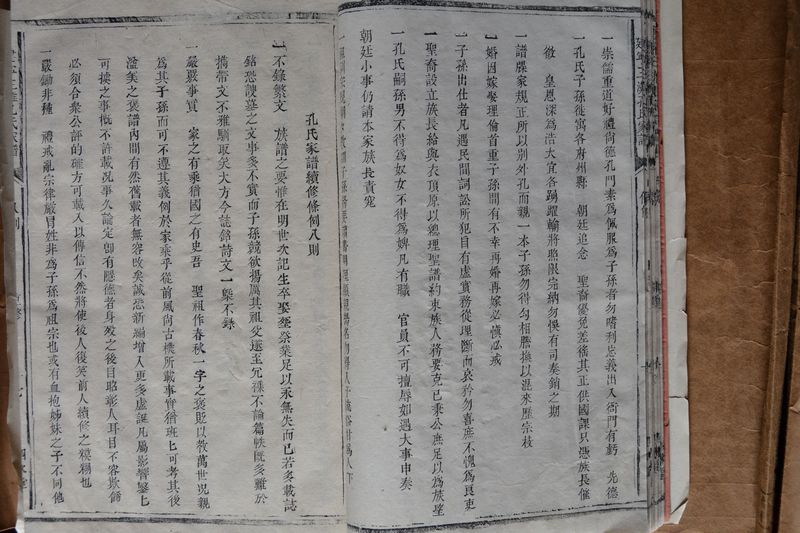 一崇儒重道好禮尚德孔門素為佩服為子孫者勿嗜利忘義出入衙門有虧 先德
一孔氏子孫徙寓各府州縣 朝廷追念 聖裔優免差徭其正供國課只憑族長催
徵 皇恩深為浩大宜各踴躍輸將照限完納勿悞有司奏銷之期
一譜牒家規正所以別外孔而親一本子孫勿得勾相謄換以混來歷宗枝
一婚因嫁娶理倫首重子孫間有不幸再婚再嫁必慎必戒
一子孫出仕者凡遇民間詞訟所犯自有虛實務從理斷而哀矜勿喜庶不愧為良吏
一聖裔設立族長給與衣頂原以總理聖譜約束族人務要克己秉公庶足以為族望
一孔氏嗣孫男不得為奴女不得為婢凡有職 官員不可擅辱如遇大事申奏
朝廷小事仍請本家族長責究
孔氏家譜續修條例八則
一不錄繁文 族譜之要惟在明世次記生卒娶塋祭業足以永無失而已若多載誌
銘恐諛墓之文事多不實而子孫競欲揚厲其祖父遂至冗祿不論篇帙既多難於
携帶文不雅馴取笑大方今誌銘詩文一槩不錄
一嚴覈事實 家之有乘猶國之有史吾 聖祖作春秋一字之褒既以教萬世况親
為其子孫而可不遵其義例於家乘乎從前風尚古樸所載事實猶班七可考其後
濫矣之褒譜內間有然舊載者無容改矣誠恐新編增入更多虛誕凡屬影響鑿七
可據之事概不許載况事久論定卽有隱德者身歿之後目昭彰人耳目不容欺飾
必須合衆公評的確方可載入以傳信不然將使後人復笑前人續修之糢糊也
一嚴鋤非種 禮戒亂宗律嚴冒姓非為子孫為祖宗也或有血抱姊妹之子不同他